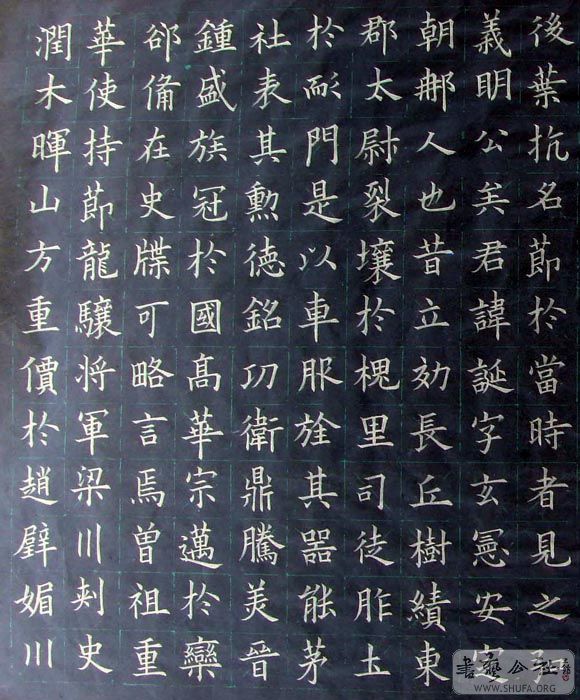 後葉抗名節於當時者見之
義明公矣君諱誕字玄憲安
朝那人也昔立効長丘樹績東
郡太尉裂壤於槐里司徒胙土
於耏門是以車服旌其器能茅
社表其勳德銘功衛鼎騰美晉
鍾盛族冠於國高華宗邁於欒
郤備在史牒可略言焉曾祖重
華使持節龍驤将軍梁川刺史
潤木暉山方重價於趙璧媚川
WWW.SHUFA.ORG